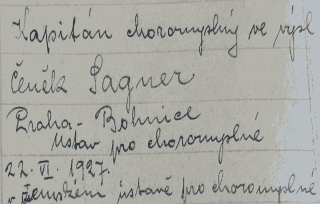 Kapitán choromyslný ve výsl
Čeněk Sagner
Praha - Bohnice
Ústav pro choromyslné
22. VI. 1927.
v zemském ústavě pro choromyslné